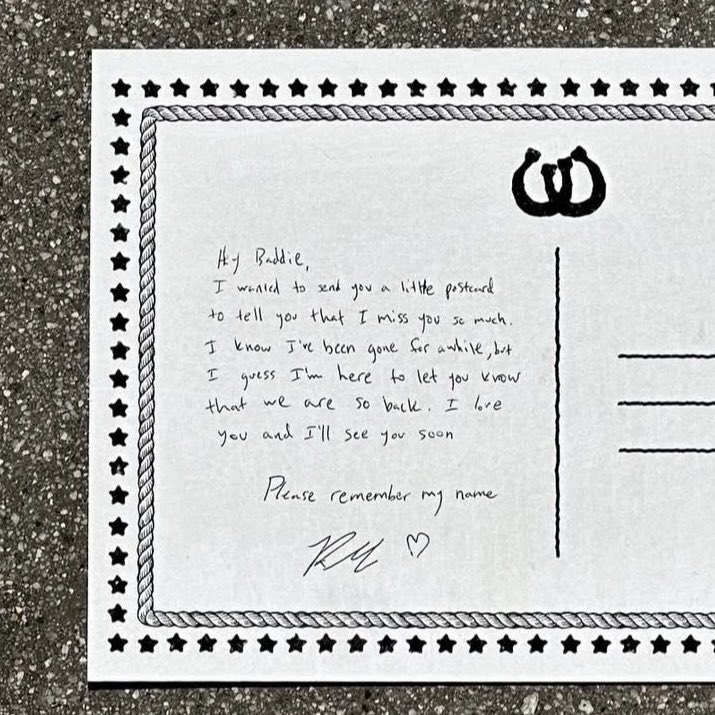 Hey Baddie,
I wanted to send you a little postcard
to tell you that I miss you so much.
I know I've been gone for awhile, but
I guess I'm here to let you know
that we are so back. I love
you and I'll see you soon
Please remember my name